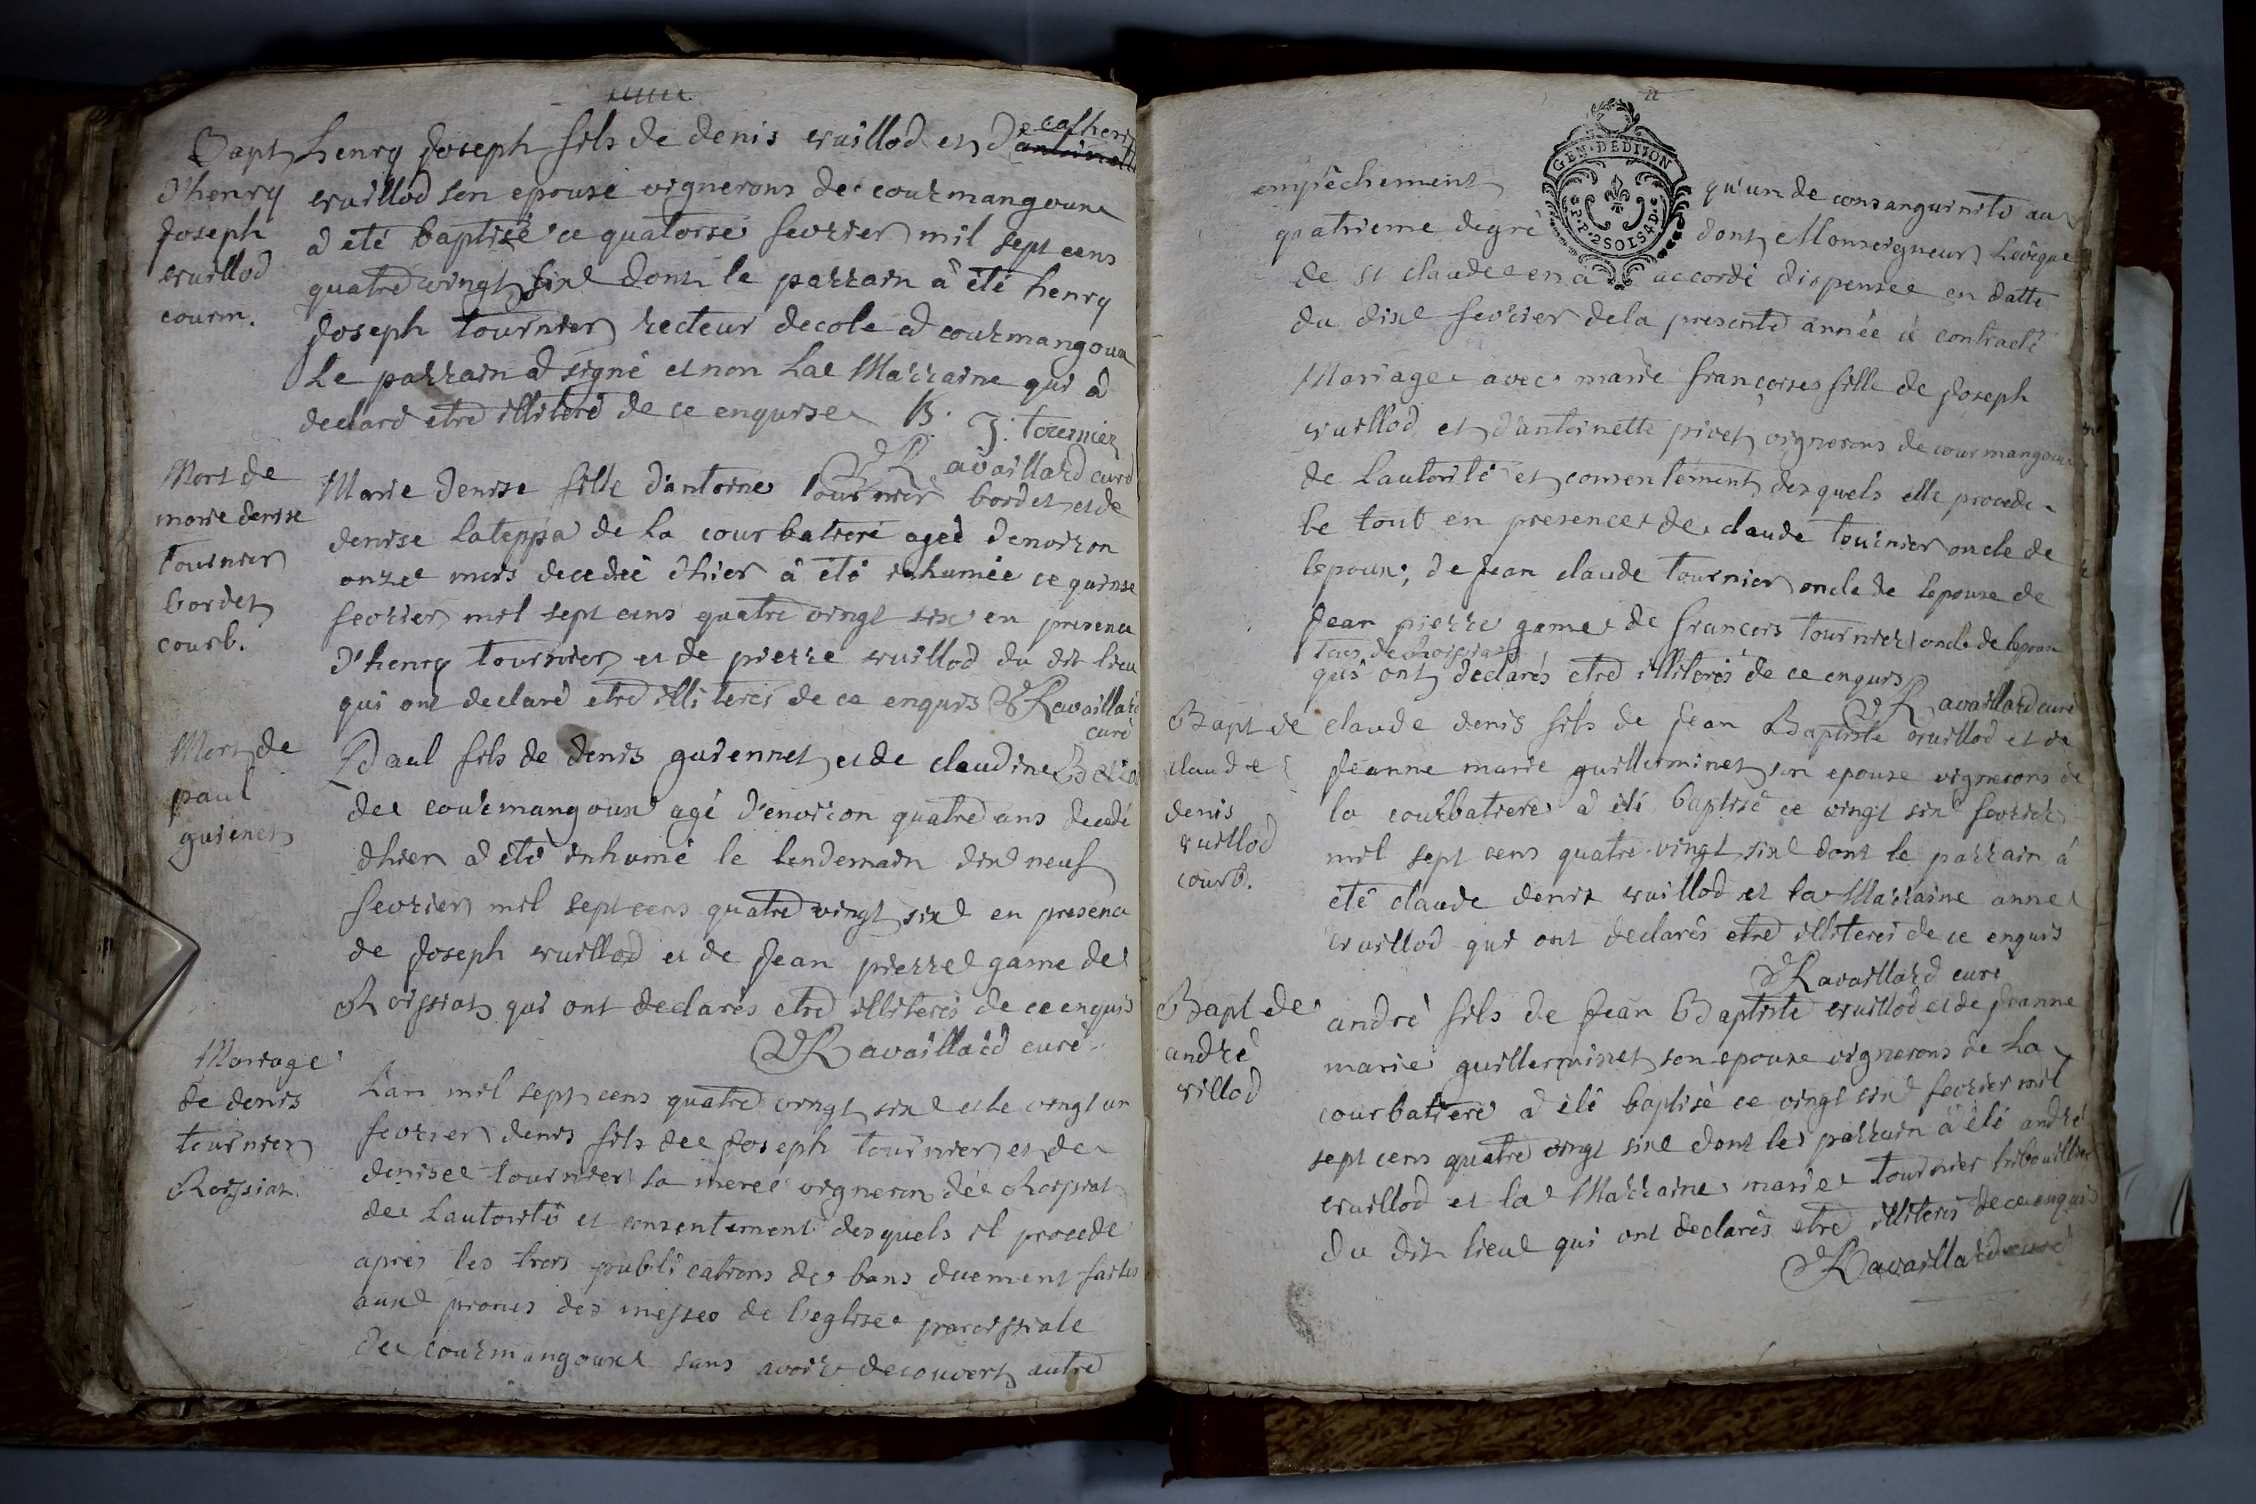 Bapt
d'henry
joseph
vuillod
courm.
henry joseph fils de denis vuillod et d'antoinette catheri
vuillod son epouse vignerons de courmangoux
a été baptisé ce quatorse fevrier mil sept cens
quatre vingt six dont le parrain à été henry
joseph tournier recteur decole a courmangoux
Le parrain a signé et non La Marraine qui a
declaré etre illiteré de ce enquise
J: tournier
Ravaillard curé
Mort de
marie denise
tournier
bordet
courb.
Marie denise fille d'antoine tournier bordet et de
denise lateppa de la courbatiere agée denviron
onze mois decedée d'hier à été inhumée ce quinse
fevrier mil sept cens quatre vingt six en presence
d'henry tournier et de pierre vuillod du dit lieu
qui ont declaré etre illiterés de ce enquis Ravaillard
curé
Mort de
paul
guienet
Paul fils de denis guiennet et de claudine
de courmangoux agé d'environ quatre ans decedé
d'hier a été inhumé le lendemain dix neuf
fevrier mil sept cens quatre vingt six en presence
de joseph vuillod et de jean pierre game de
Roissiat qui ont declarés etre illiterés de ce enquis
Ravaillard curé
Mariage
de denis
tournier
Roissiat.
L'an mil sept cens quatre vingt six et le vingt un
fevrier denis fils de joseph tournier et de
denise tournier sa mere vigneron de Roissiat
de l'autorité et consentement desquels il procede
apres les trois publications de bans duement faites
aux prones des messes de l'eglise paroissiale
de courmangoux sans avoir decouvert autre
GEN. DE DIJON
P.P. 2 SOLS 4 D.
empêchement qu'un de consanguinité au
quatrieme degré dont Monseigneur L'evêque
de St claude en a accordé dispense en datte
du dix fevrier de la presente année à contracté
Mariage avec marie françoise fille de joseph
vuillod et d'antoinette pivet vignerons de courmangoux
de l'autorité et consentement desquels elle procede
le tout en presence de claude tournier oncle de
lepoux, de jean claude tournier oncle de lepouse de
jean pierre game de françois tournier oncle de lepoux
tous de Roissiat
qui ont declarés etre illiterés de ce enquis
Ravaillard curé
Bapt de
claude
denis
vuillod
courb.
claude denis fils de jean Baptiste vuillod et de
jeanne marie guillerminet son epouse vignerons de
la courbatiere a été baptisé ce vingt six fevrier
mil sept cens quatre vingt six dont le parrain à
été claude denis vuillod et la Marraine anne
vuillod qui ont declarés etre illiterés de ce enquis
Ravaillard curé
Bapt de
andré
villod
andré fils de jean Baptiste vuillod et de jeanne
marie guillerminet son epouse vignerons de la
courbatiere a été baptisé ce vingt six fevrier mil
sept cens quatre vingt six dont le parrain à été andré
vuillod et la Marraine marie tournier
du dit lieu qui ont declarés etre illiterés de ce enquis
Ravaillard curé